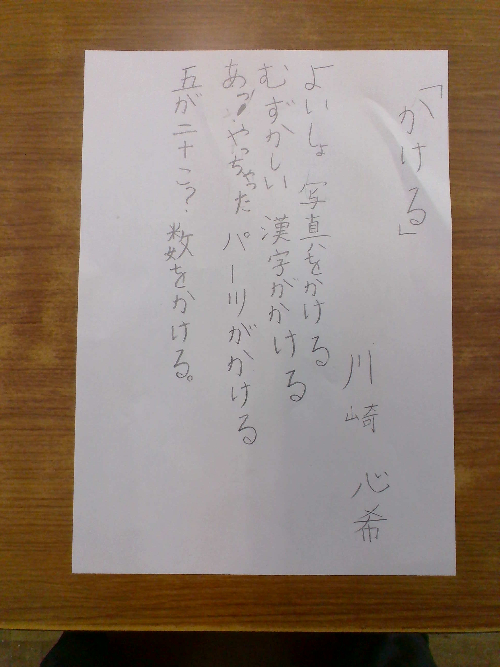 「かける」
川崎 心希
よいしょ 写真をかける
むずかしい 漢字がかける
あっ!やっちゃった パーツがかける
五が二十こ?数をかける。